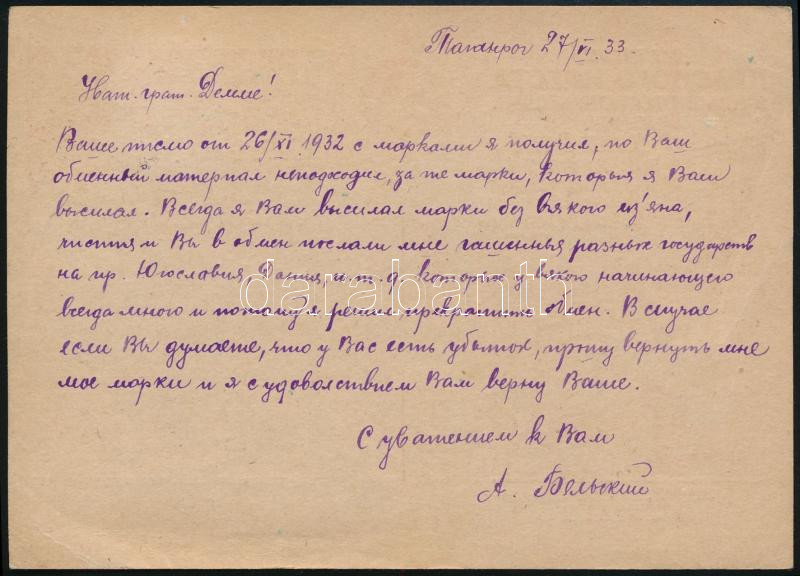 Таганрог 27/VI. 33.
Нат. грат. Демме!
Ваше писмо от 26/XI 1932 с марками я получил, но Ваш
обменный матерпал неподходил, за те марки, которыя я Вам
высилал. Всегда я Вам высилал марки без всякого из'яна,
чистия и Вы в обмен послали мне гашиныя разных государств
на пр. Югославия, Дания, и т. д. которых у всякого начинающего
всегда много и потому я решил прекратить обмен. В случае
если Вы думаете, что у Вас есть убыток, прошу вернуть мне
мое марки и я с удоволствием Вам верну Ваше.
С уважением к Вам
А. Бельский
darabanth